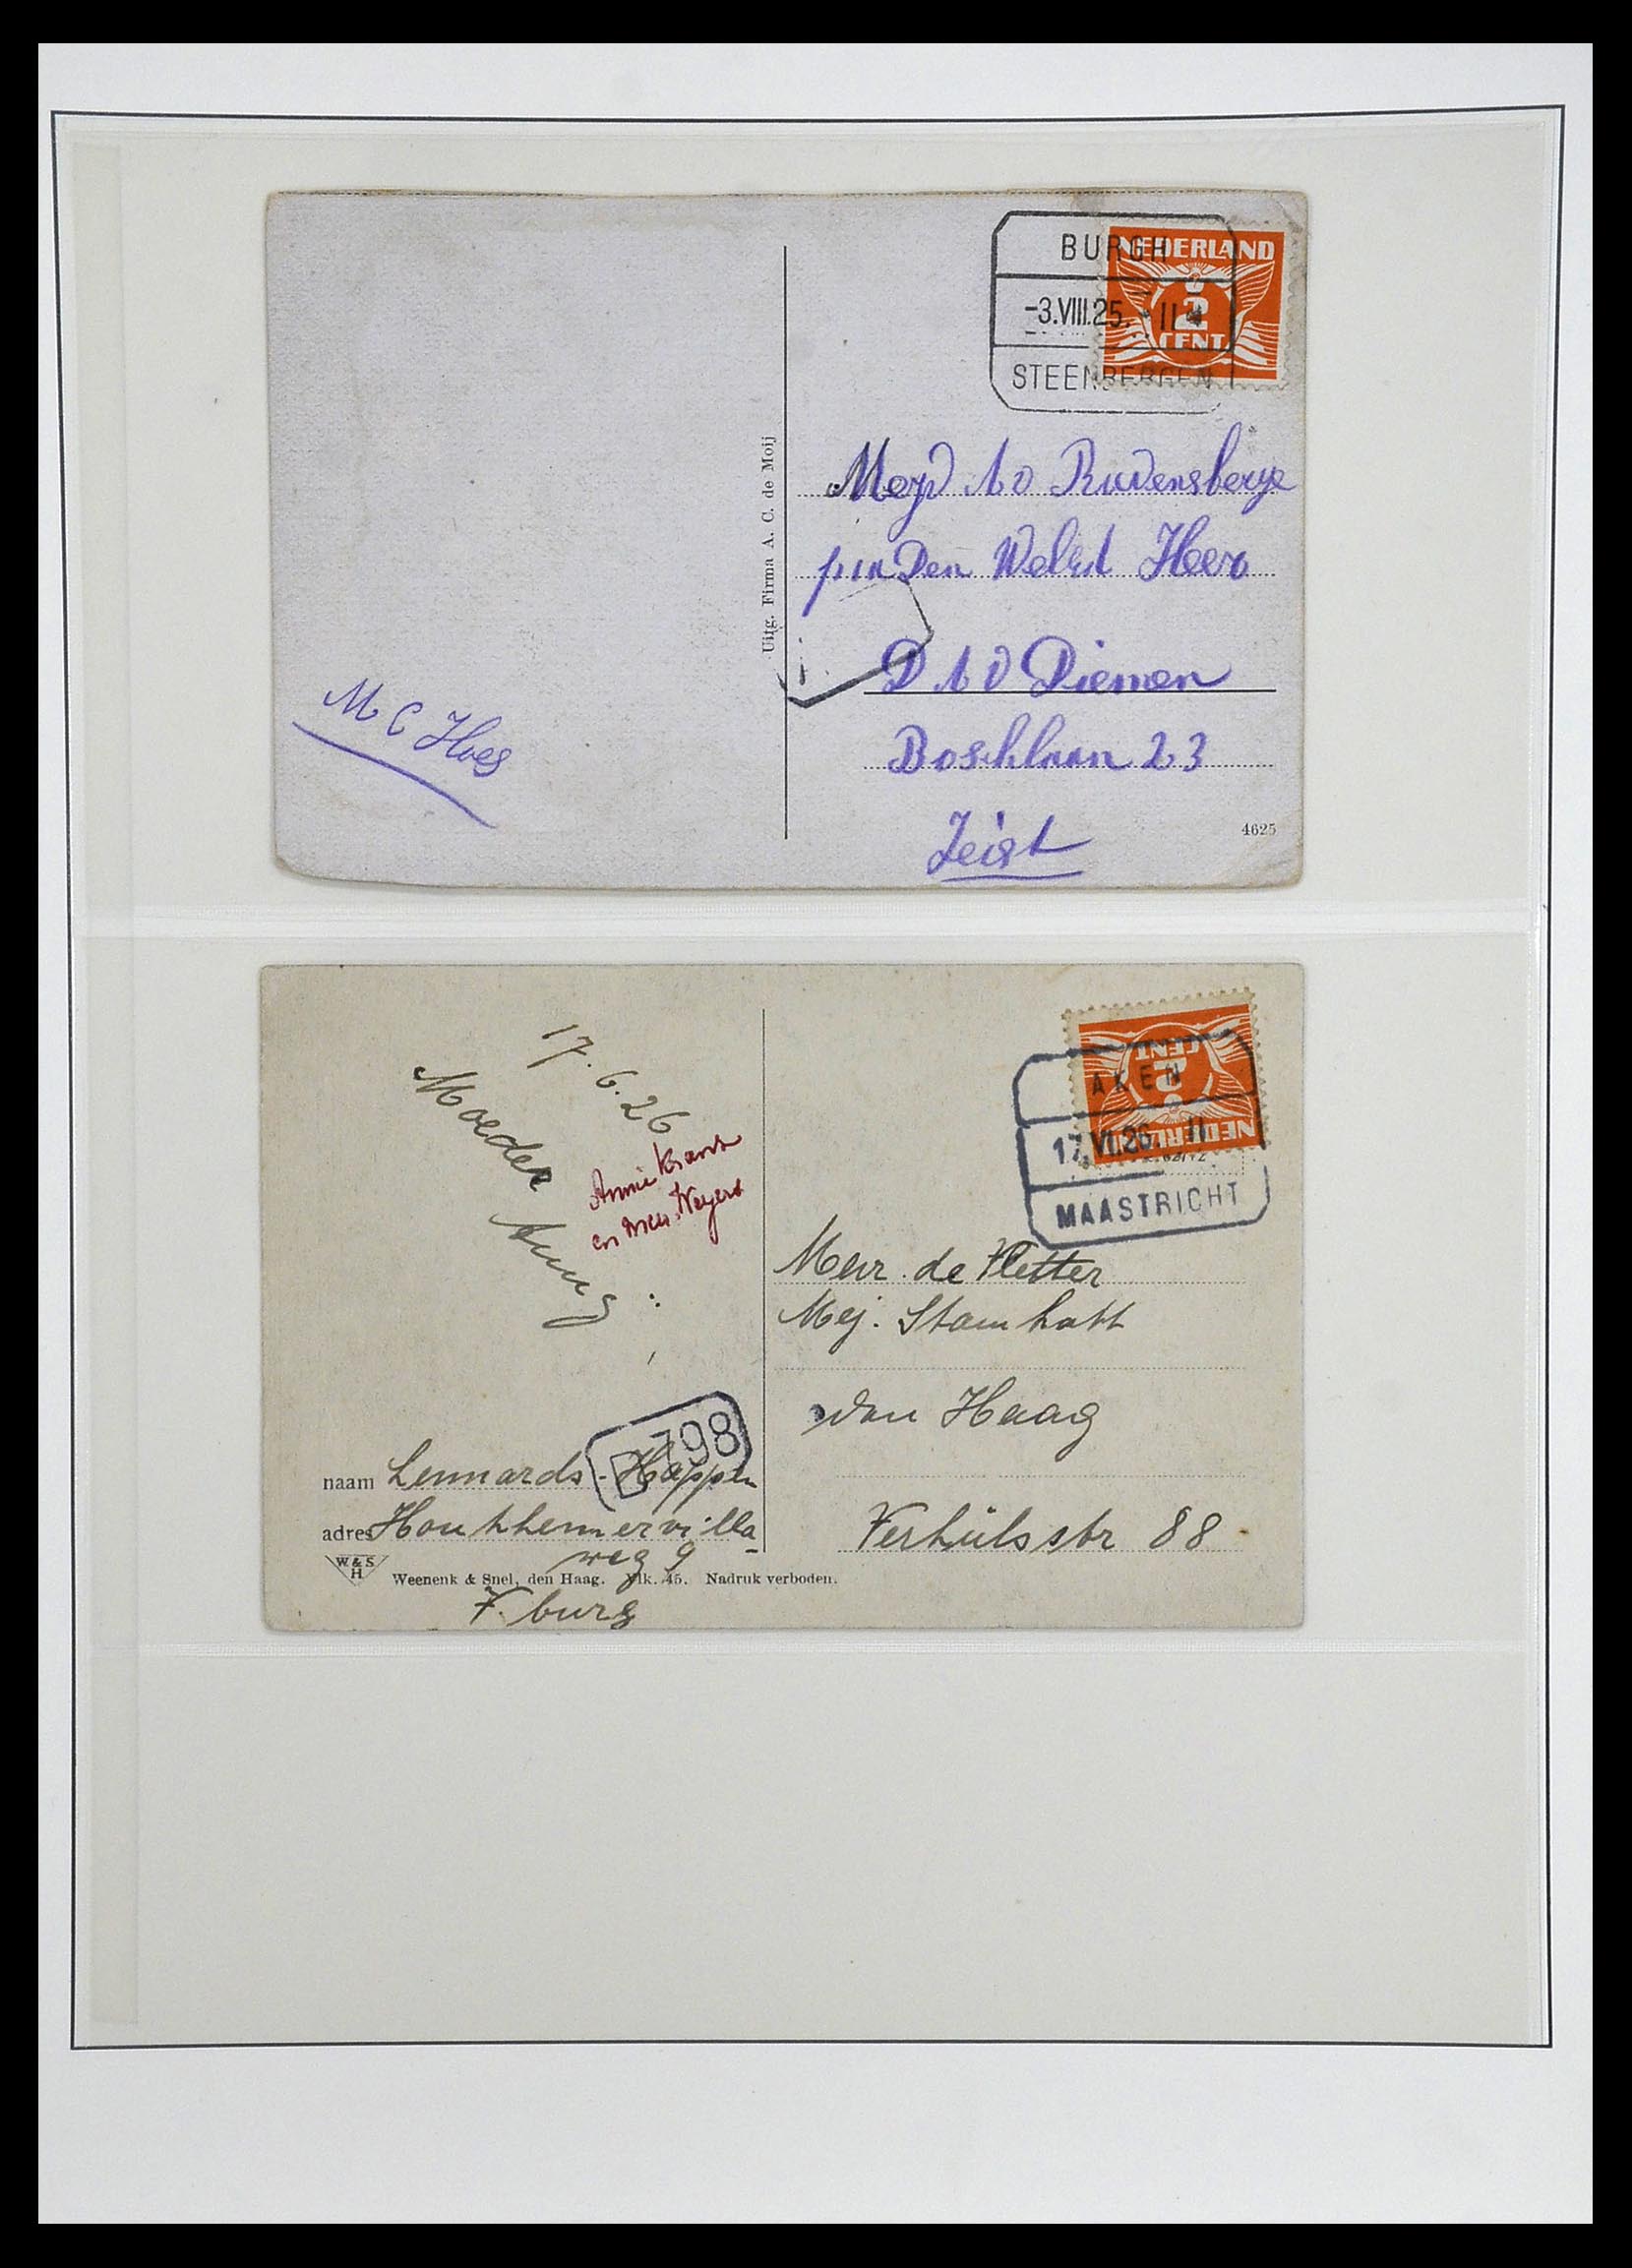 BURGH
-3.VIII.25. II
STEENBERGEN
NEDERLAND
2
CENT
Mejd A v Ruvensberge
p/a Den Weled Heer
D A V Diemen
Boschlaan 23
Zeist
M C Hoes
Uitg. Firma A. C. de Moij
4625
17.6.26
Moeder
Annie
en Mevr.
AKEN
17.VI.26. II
MAASTRICHT
NEDERLAND
2
CENT
Mevr. de Vletter
Mej. Stamhatt
den Haag
Verhulsstr 88
798
naam Lennards - Happen
adres Houthhemervilla
weg 9
V. burg
W & S
H
Weenenk & Snel, den Haag. Vlk. 45. Nadruk verboden.